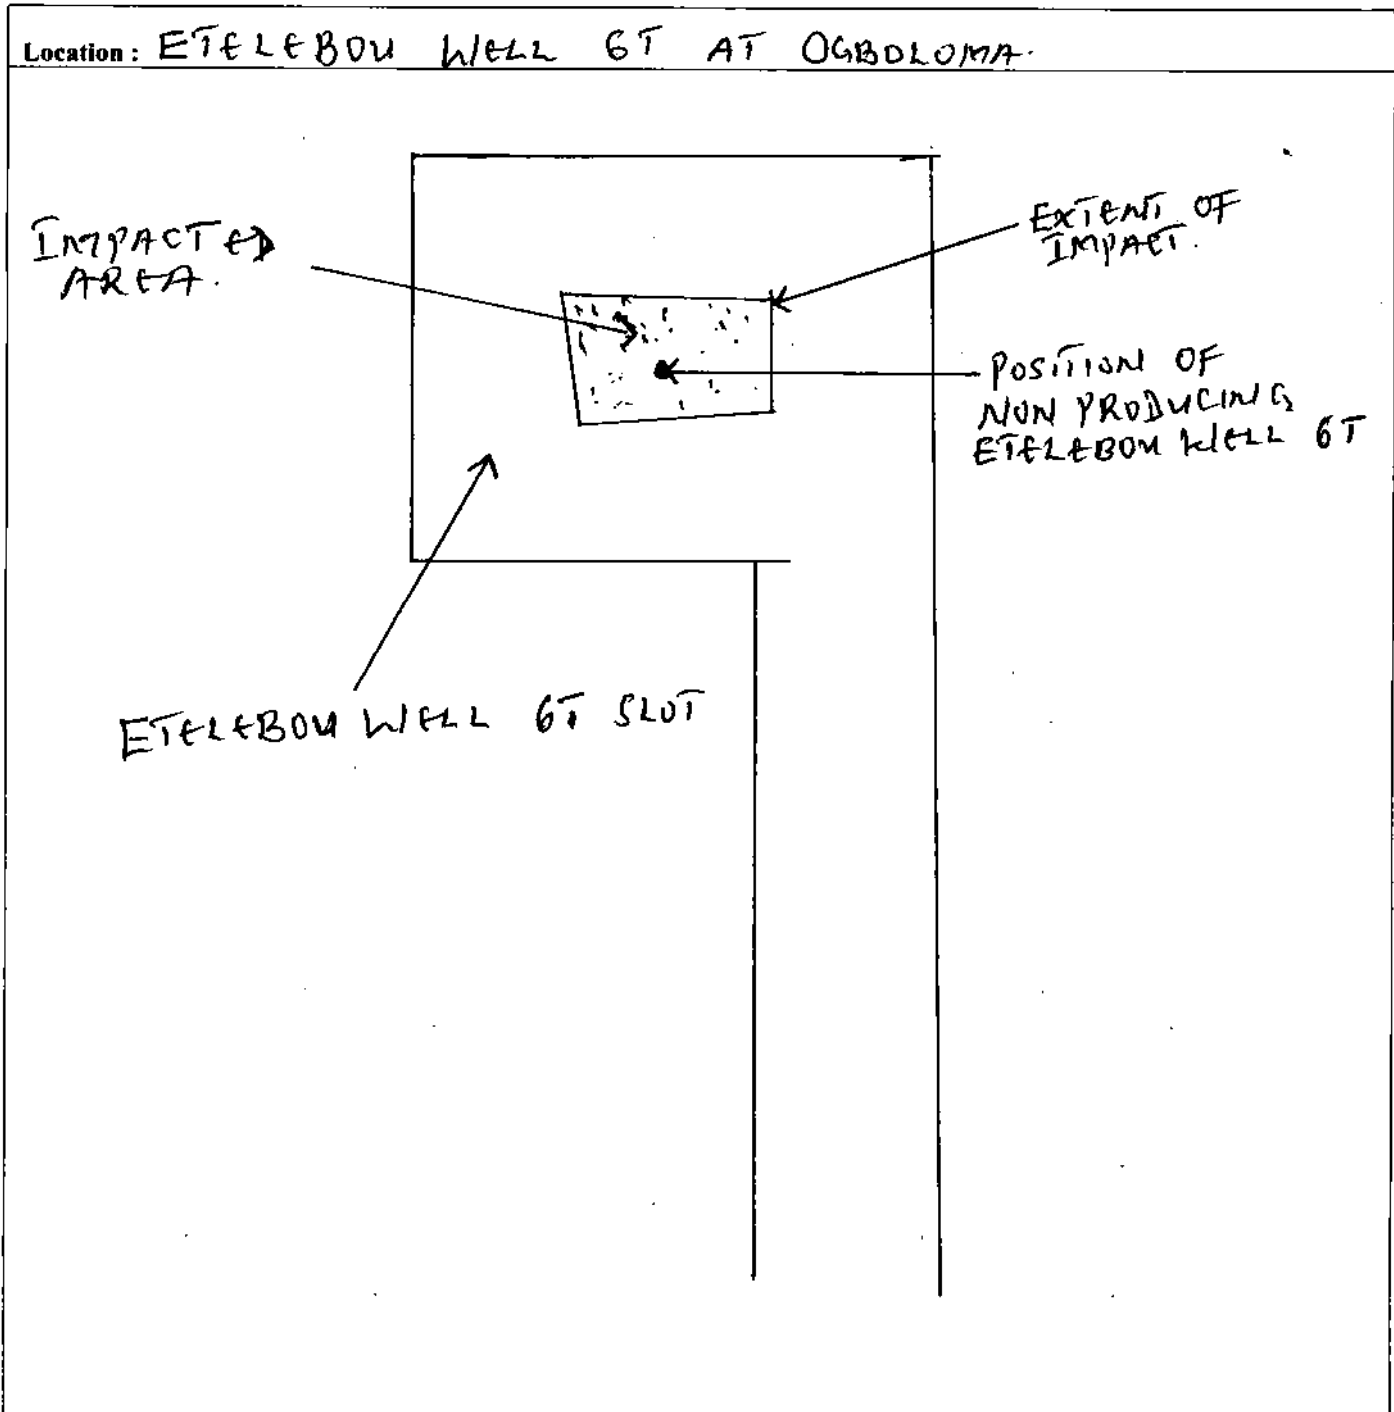 Location : ETELEBOU WELL 6T AT OGBOLOMA.
IMPACTED
AREA.
EXTENT OF
IMPACT.
POSITION OF
NON PRODUCING
ETELEBOU WELL 6T
ETELEBOU WELL 6T SLOT